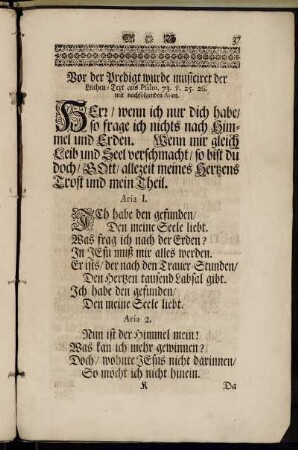 37
Vor der Predigt wurde musiciret der
Leichen/ Text aus Psalm. 73. v. 25. 26.
mit nachfolgenden Arien.
HErr/ wenn ich nur dich habe/
so frage ich nichts nach Him-
mel und Erden. Wenn mir gleich
Leib und Seel verschmacht/ so bist du
doch/ GOtt/ allezeit meines Hertzens
Trost und mein Theil.
Aria 1.
ICh habe den gefunden/
Den meine Seele liebt.
Was frag ich nach der Erden?
In JEsu muß mir alles werden.
Er ists/ der nach den Trauer-Stunden/
Den Hertzen tausend Labsal gibt.
Ich habe den gefunden/
Den meine Seele liebt.
Aria 2.
Nun ist der Himmel mein!
Was kan ich mehr gewinnen?
Doch/ wohnte JEsus nicht darinnen/
So möcht ich nicht hinein.
K Da